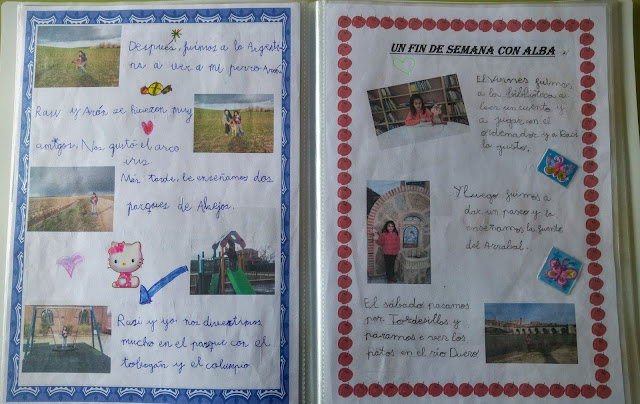 Después, fuimos a la Argenti
na a ver a mi perro Arón.
Rasi y Arón se hicieron muy
amigos. Nos gustó el arco
iris
Más tarde, le enseñamos dos
parques de Abejos.
Rasi y yo nos divertimos
mucho en el parque con el
tobogán y el columpio
UN FIN DE SEMANA CON ALBA
El Viernes fuimos
a la biblioteca a
leer un cuento y
a jugar con el
ordenador y a Rasi
la gusto.
Y luego fuimos a
dar un paseo y le
enseñamos la fuente
del Arrabal.
El sábado pasamos
por Tordesillas y
paramos a ver los
patos en el río Duero